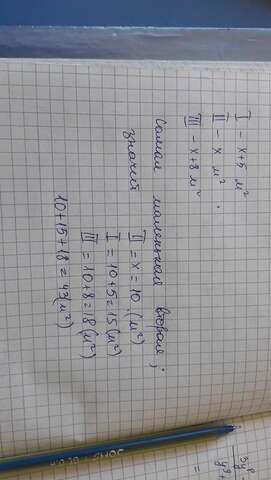 I – x+5 м²
II – x м².
III – x+8 м²
Самая маленькая вторая;
значит II = x = 10 (м²)
I = 10+5=15(м²)
III = 10+8=18(м²)
10+15+18=43(м²)